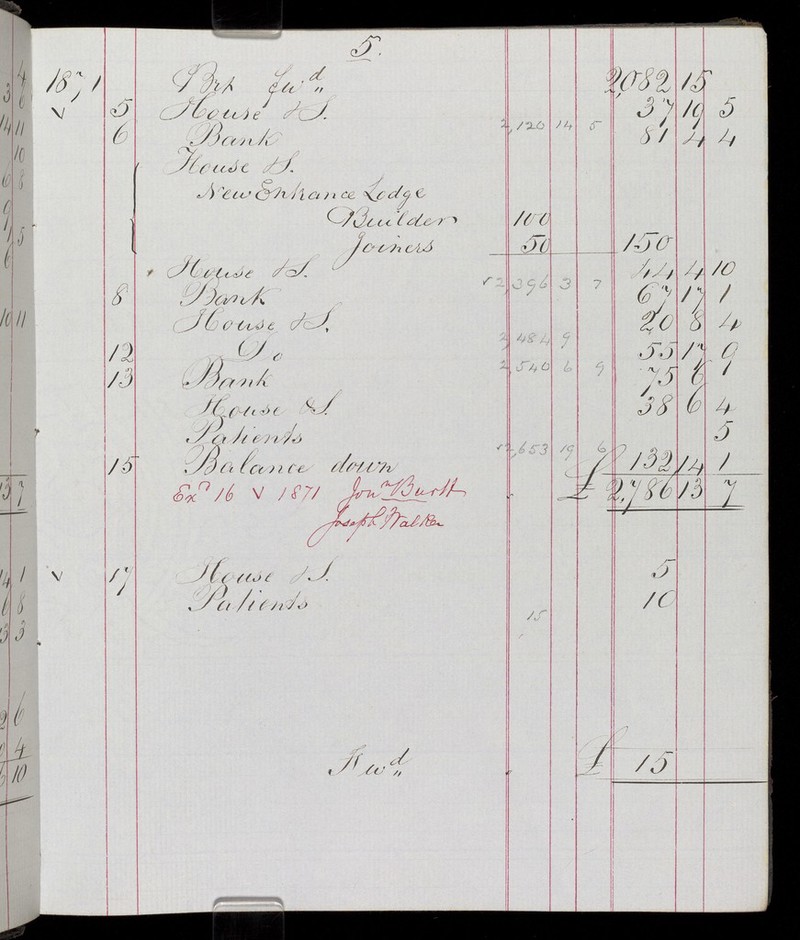 5.
1871 Brt Fwd 2,082 15
V 5 House &S. 37 19 5
6 Bank 2,120 14 5 81 4 4
House &S.
New Entrance Lodge
Builder 100
Joiners 50 150
House &S. 44 4 10
8 Bank 2,396 3 7 67 17 1
House &S. 20 8 4
12 Do 2,484 9 55 17 9
13 Bank 2,540 6 9 75 6 1
House &S. 38 6 4
Patients 5
15 Balance down 2,653 19 6 132 14 1
Exd 16 V 1871 Jonn Burtt £ 2,786 13 7
Joseph Walker
V 17 House &S. 5
Patients 10
15
Fwd £ 15